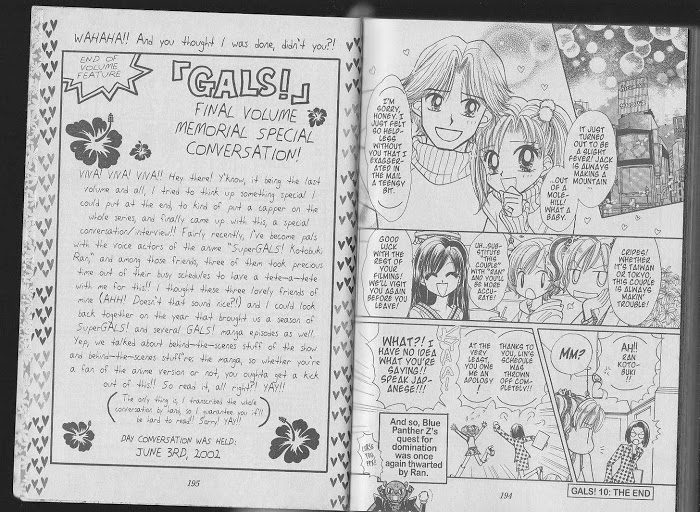 WAHAHA!! And you thought I was done, didn't you?!
END OF
VOLUME
FEATURE
「GALS!」
FINAL VOLUME
MEMORIAL SPECIAL
CONVERSATION!
VIVA! VIVA! VIVA!! Hey there! Y'know, it being the last
volume and all, I tried to think up something special I
could put at the end, to kind of put a capper on the
whole series, and finally came up with this, a special
conversation/interview!! Fairly recently, I've become pals
with the voice actors of the anime "SuperGALS! Kotobuki
Ran," and among those friends, three of them took precious
time out of their busy schedules to have a tete-a-tete
with me for this!! I thought these three lovely friends of
mine (AHH! Doesn't that sound nice?!) and I could look
back together on the year that brought us a season of
SuperGALS! and several GALS! manga episodes as well.
Yep, we talked about behind-the-scenes stuff of the show
and behind-the-scenes stuff're the manga, so whether you're
a fan of the anime version or not, you oughta get a kick
out of this!! So read it, all right?! YAY!!
(The only thing is, I transcribed the whole
conversation by hand, so I guarantee you it'll
be hard to read!! Sorry! YAY!!)
DAY CONVERSATION WAS HELD:
JUNE 3RD, 2002
195
IT JUST
TURNED
OUT TO BE
A SLIGHT
FEVER! JACK
IS ALWAYS
MAKING A
MOUNTAIN...
...OUT
OF A
MOLE-
HILL!
WHAT A
BABY.
I'M
SORRY,
HONEY. I
JUST FELT
SO HELP-
LESS
WITHOUT
YOU THAT I
EXAGGER-
ATED IN
THE MAIL
A TEENGY
BIT.
CRIPES!
WHETHER
IT'S TAIWAN
OR TOKYO,
THIS COUPLE
IS ALWAYS
MAKIN'
TROUBLE!
UH...SUB-
STITUTE
"THIS
COUPLE"
WITH "RAN"
AND YOU'LL
BE MORE
ACCU-
RATE!
GOOD
LUCK
WITH THE
REST OF
YOUR
FILMING!
WE'LL VISIT
YOU AGAIN
BEFORE YOU
LEAVE!
AH!!
RAN
KOTO-
BUKI!!
MM?
THANKS TO
YOU, LIN'S
SCHEDULE
WAS
THROWN
OFF COM-
PLETELY!!
AT THE
VERY
LEAST,
YOU OWE
ME AN
APOLOGY!
WHAT?! I
HAVE NO IDEA
WHAT YOU'RE
SAYING!!
SPEAK JAP-
ANESE!!!
And so, Blue
Panther Z's
quest for
domination
was once
again thwarted
by Ran.
194
GALS! 10: THE END